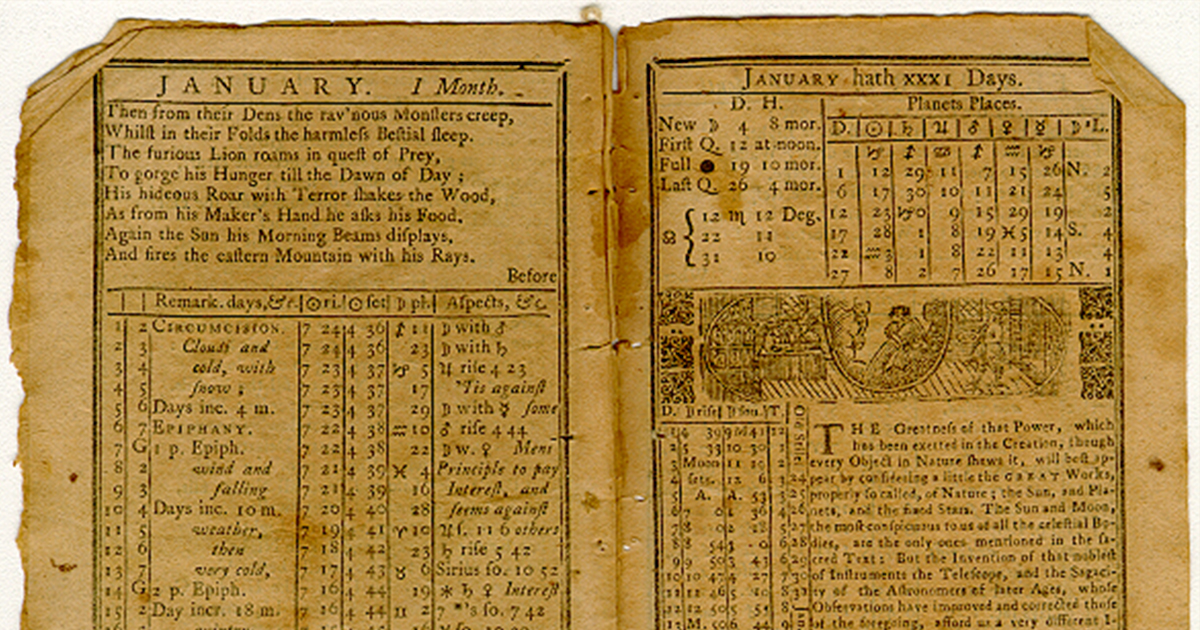 JANUARY. I Month.
Then from their Dens the rav'nous Monſters creep,
Whilſt in their Folds the harmleſs Beſtial ſleep.
The furious Lion roams in queſt of Prey,
To gorge his Hunger till the Dawn of Day ;
His hideous Roar with Terror ſhakes the Wood,
As from his Maker's Hand he aſks his Food.
Again the Sun his Morning Beams diſplays,
And fires the eaſtern Mountain with his Rays.
Before
Remark. days, &c. ☉ ri. ☉ ſet ☽ pl. Aſpects, &c.
1 2 CIRCUMCISION. 7 24 4 36 ♐ 11 ☽ with ♂
2 3 Clouds and 7 24 4 36 23 ☽ with ♄
3 4 cold, with 7 23 4 37 ♑ 5 ♃ riſe 4 23
4 5 ſnow ; 7 23 4 37 17 'Tis againſt
5 6 Days inc. 4 m. 7 23 4 37 29 ☽ with ☿ ſome
6 7 EPIPHANY. 7 22 4 38 ♒ 10 ♂ riſe 4 44
7 G 1 p. Epiph. 7 22 4 38 22 ☽ w. ♀ Mens
8 2 wind and 7 21 4 39 ♓ 4 Principle to pay
9 3 falling 7 21 4 39 16 Intereſt, and
10 4 Days inc. 10 m. 7 20 4 40 28 ſeems againſt
11 5 weather, 7 19 4 41 ♈ 10 ♃ ſ. 11 6 others
12 6 then 7 18 4 42 23 ♄ riſe 5 42
13 7 very cold, 7 17 4 43 ♉ 6 Sirius ſo. 10 52
14 G 2 p. Epiph. 7 16 4 44 19 ⚹ ♄ ♀ Intereſt
15 2 Day incr. 18 m. 7 16 4 44 ♊ 2 7 *'s ſo. 7 42
JANUARY hath XXXI Days.
D. H.
New ☽ 4 8 mor.
Firſt Q. 12 at noon.
Full ● 19 10 mor.
Laſt Q. 26 4 mor.
☊ { 12 ♏ 12 Deg.
22 11
31 10
Planets Places.
D. ☉ ♄ ♃ ♂ ♀ ☿ ☽'s L.
♑ ♐ ♋ ♐ ♒ ♑
1 12 29 11 7 15 26 N. 2
6 17 30 10 11 21 24 5
12 23 ♑ 0 9 15 29 19 2
17 28 1 8 19 ♓ 5 14 S. 4
22 ♒ 3 1 8 22 11 13 4
27 8 2 7 26 17 15 N. 1
D. ☽ riſe ☽ ſou. T.
THE Greatneſs of that Power, which
has been exerted in the Creation, though
every Object in Nature ſhews it, will beſt ap-
pear by conſidering a little the GREAT Works,
properly ſo called, of Nature ; the Sun, and Pla-
nets, and the fixed Stars. The Sun and Moon,
the moſt conſpicuous to us of all the celeſtial Bo-
dies, are the only ones mentioned in the ſa-
cred Text: But the Invention of that nobleſt
of Inſtruments the Teleſcope, and the Sagaci-
ty of the Aſtronomers of later Ages, whoſe
Obſervations have improved and corrected thoſe
of the foregoing, afford us a very different I-